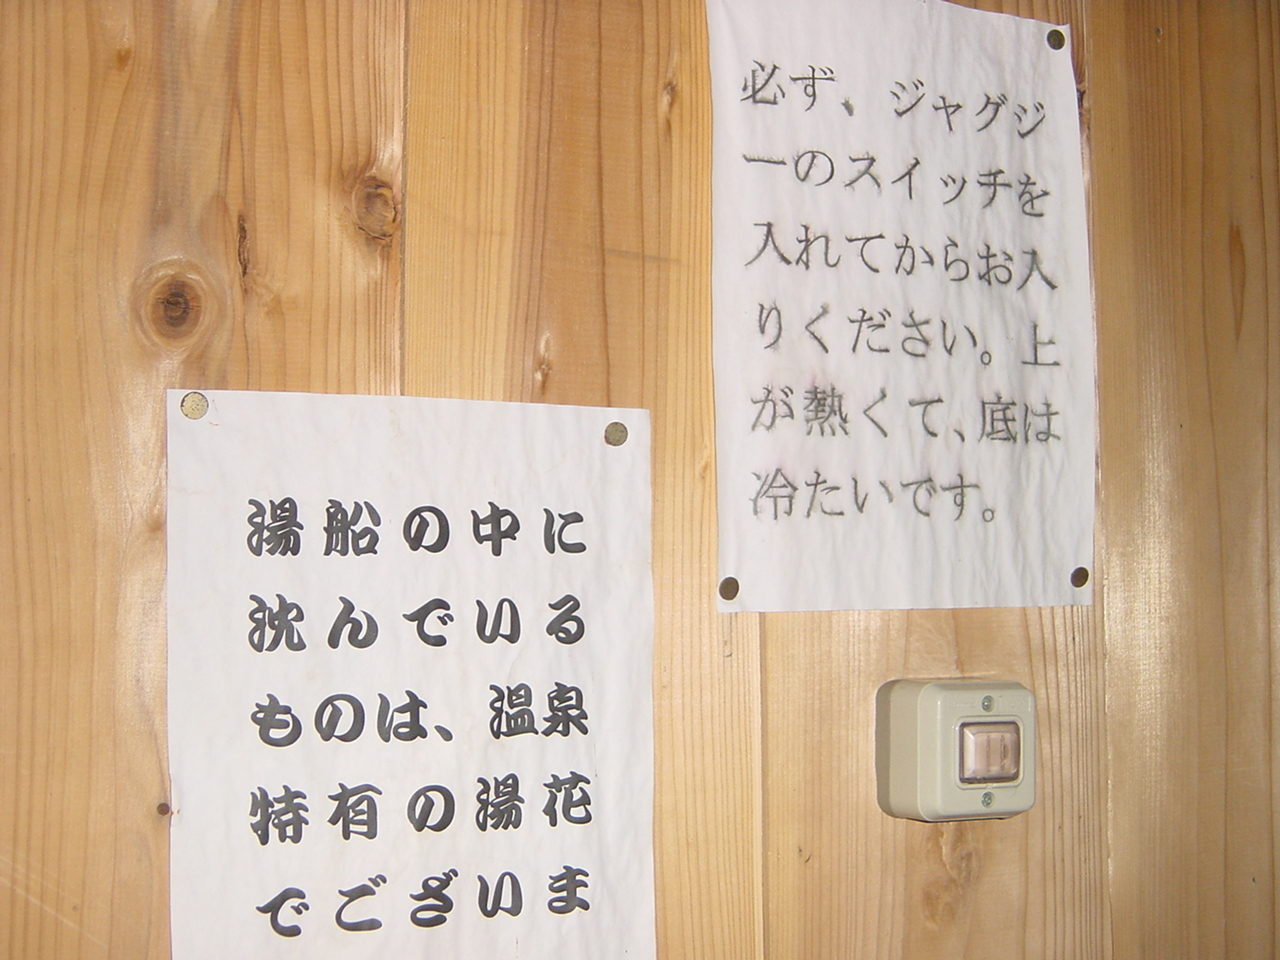 必ず、ジャグジ
ーのスイッチを
入れてからお入
りください。上
が熱くて、底は
冷たいです。
湯船の中に
沈んでいる
ものは、温泉
特有の湯花
でございま